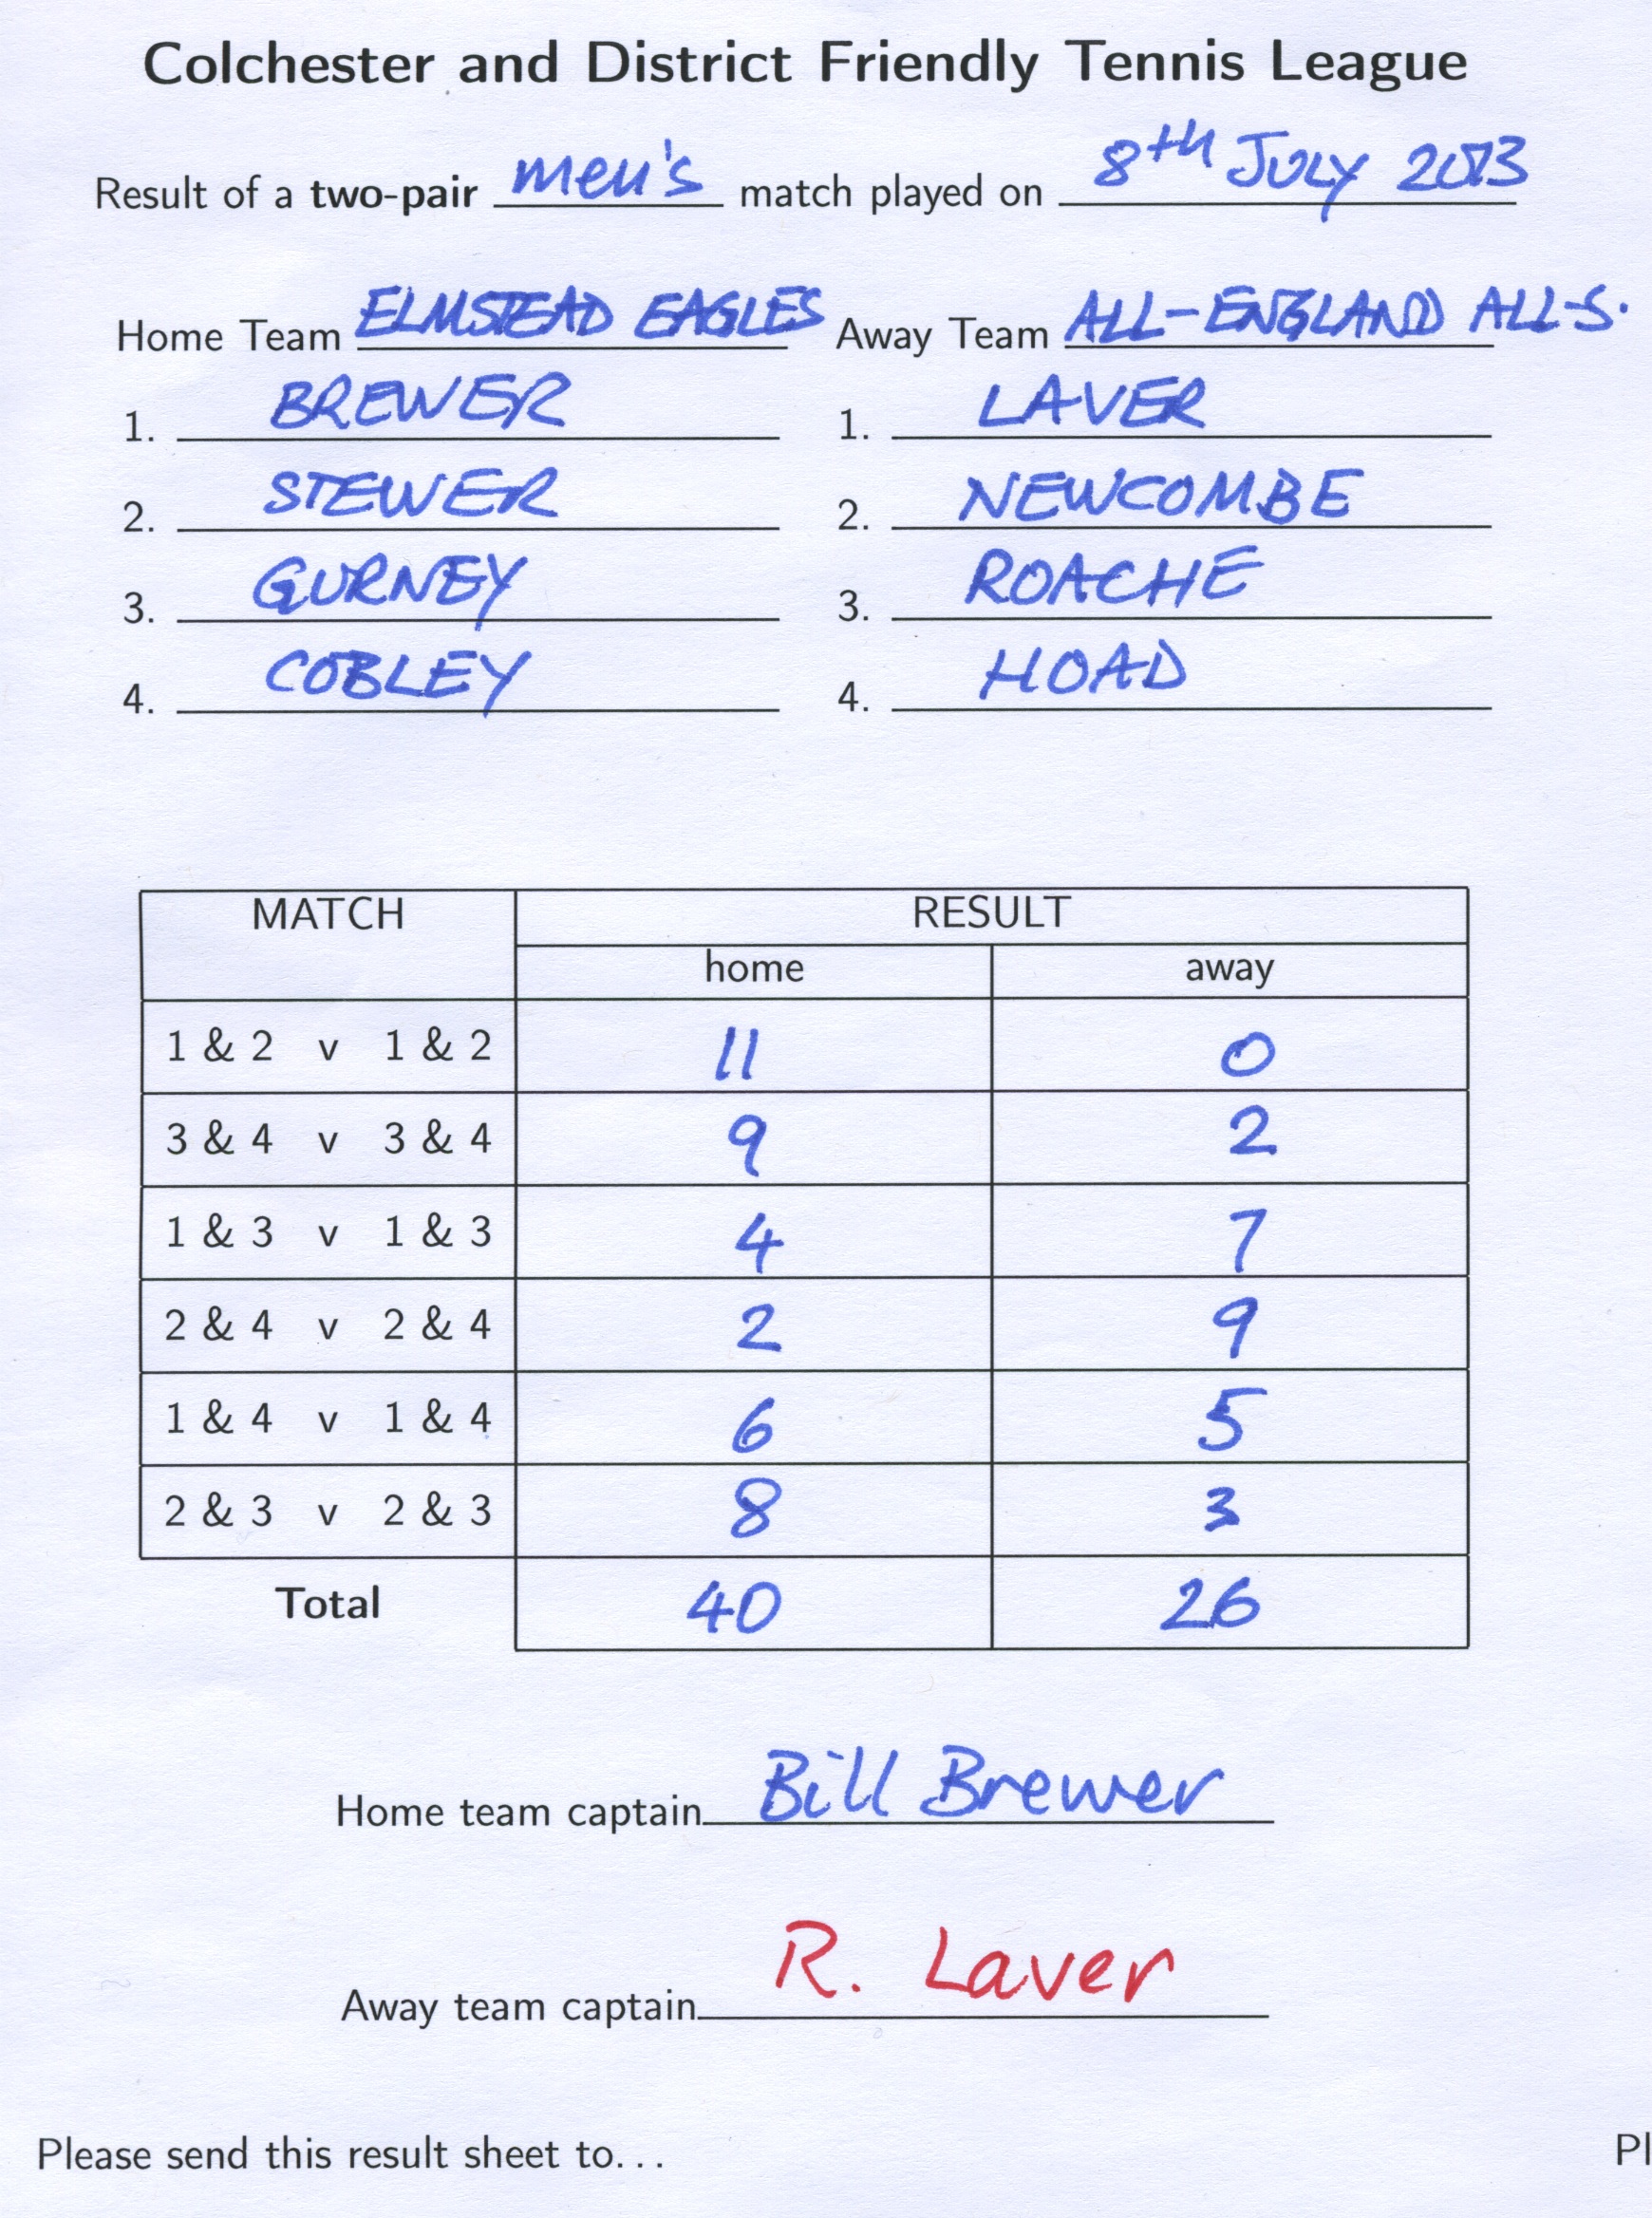 Colchester and District Friendly Tennis League
Result of a two-pair men's match played on 8th JULY 2013
Home Team ELMSTEAD EAGLES Away Team ALL-ENGLAND ALL-S.
1. BREWER 1. LAVER
2. STEWER 2. NEWCOMBE
3. GURNEY 3. ROACHE
4. COBLEY 4. HOAD
MATCH RESULT
home away
1 & 2 v 1 & 2 11 0
3 & 4 v 3 & 4 9 2
1 & 3 v 1 & 3 4 7
2 & 4 v 2 & 4 2 9
1 & 4 v 1 & 4 6 5
2 & 3 v 2 & 3 8 3
Total 40 26
Home team captain Bill Brewer
Away team captain R. Laver
Please send this result sheet to... Pl